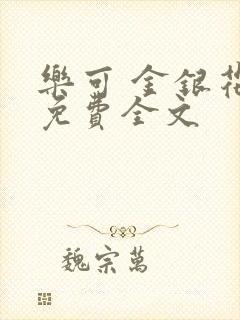 樂可 金銀花
免費全文
魏宗萬